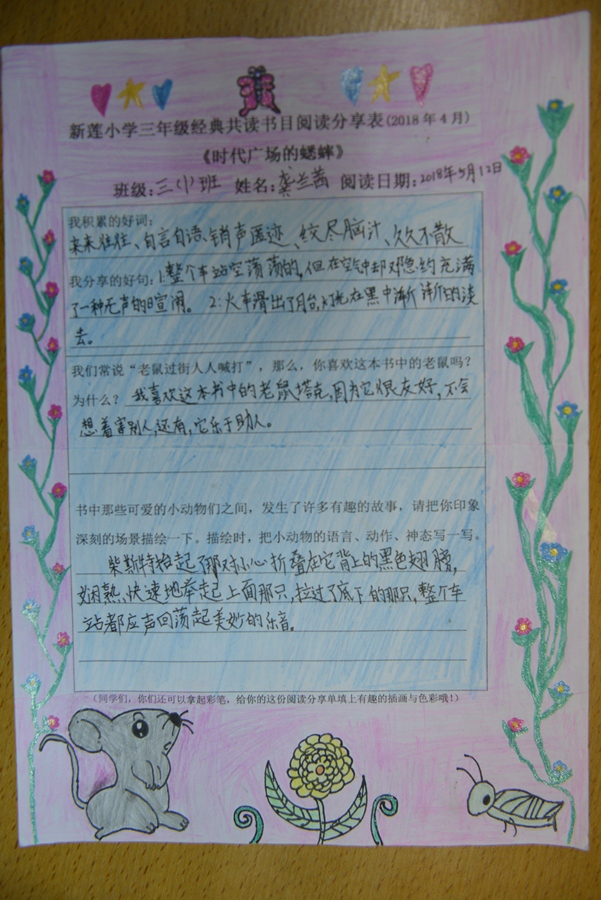 新莲小学三年级经典共读书目阅读分享表(2018年4月)
《时代广场的蟋蟀》
班级:三(1)班 姓名:龚兰茜 阅读日期:2018年5月12日
我积累的好词:
来来往往、自言自语、销声匿迹、绞尽脑汁、久久不散
我分享的好句:1:整个车站空荡荡的,但在空气中却又隐约充满
了一种无声的喧闹。 2:火车滑出了月台,灯光在黑中渐渐的淡
去。
我们常说“老鼠过街人人喊打”,那么,你喜欢这本书中的老鼠吗?
为什么? 我喜欢这本书中的老鼠塔克,因为它很友好,不会
想着害别人,还有,它乐于助人。
书中那些可爱的小动物们之间,发生了许多有趣的故事,请把你印象
深刻的场景描绘一下。描绘时,把小动物的语言、动作、神态写一写。
柴斯特抬起了那对小心折叠在它背上的黑色翅膀,
娴熟、快速地举起上面那只,拉过了底下的那只,整个车
站都应声回荡起美妙的乐音。
(同学们,你们还可以拿起彩笔,给你的这份阅读分享单填上有趣的插画与色彩哦!)